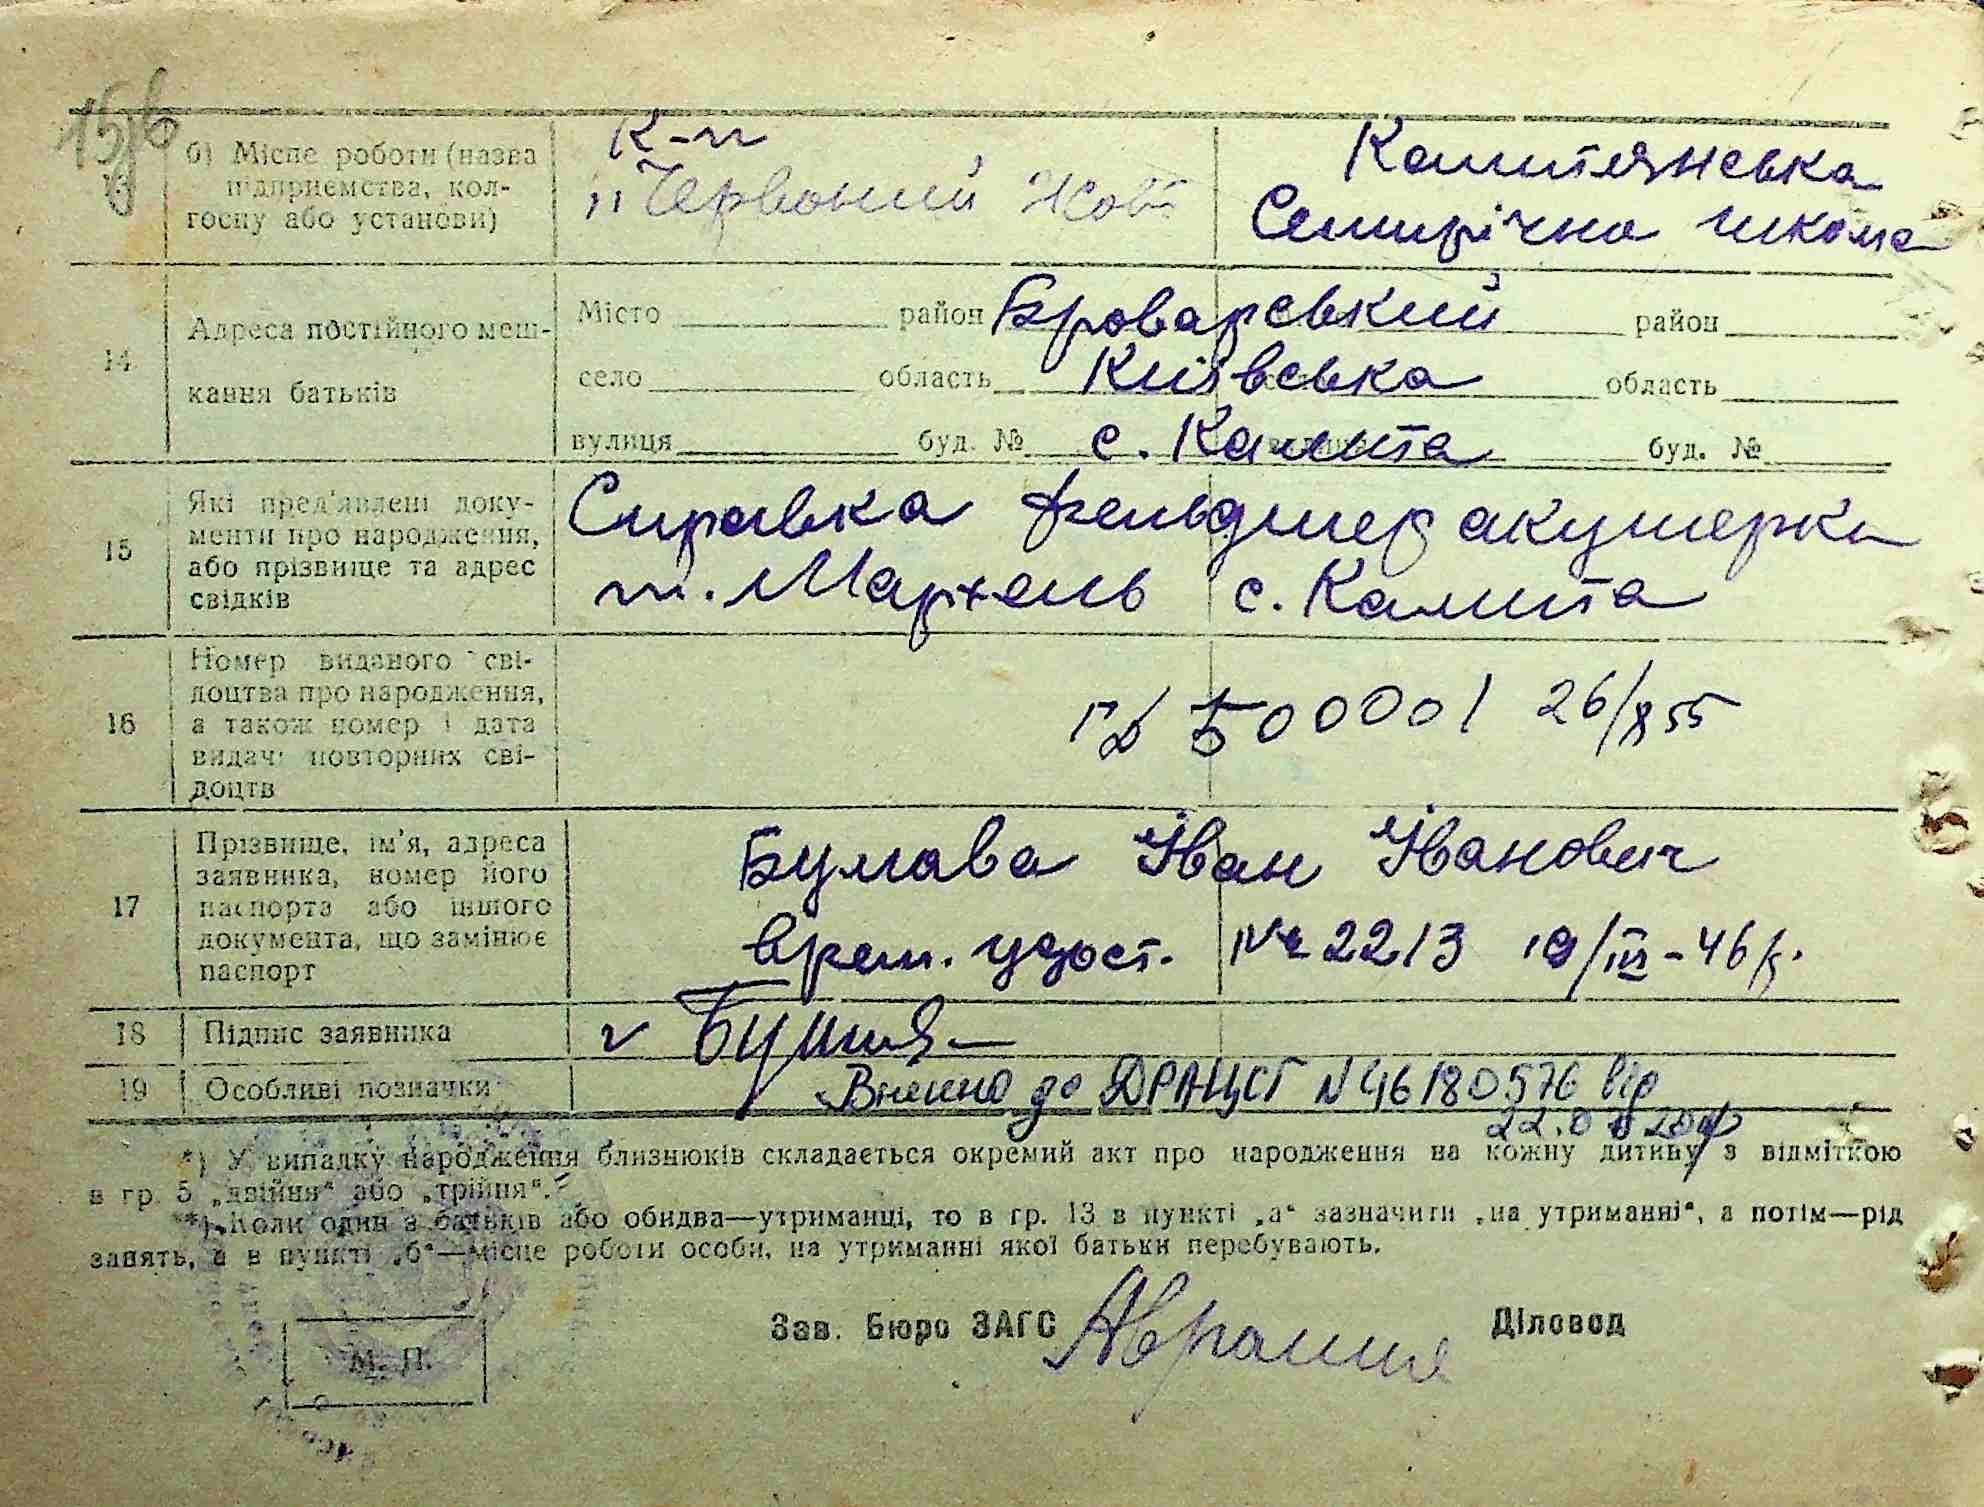 б) Місце роботи (назва підприємства, колгоспу або установи)
К-п
„Червоний Жовт
Калитянська
Семирічна школа
14
Адреса постійного мешкання батьків
Місто район Броварський район
село область Київська область
вулиця буд. № с. Калита буд. №
15
Які пред'явлені документи про народження, або прізвище та адрес свідків
Справка фельдшер акушерки
т. с. Калита
16
Номер виданого свідоцтва про народження, а також номер і дата видачі повторних свідоцтв
26/X 55
17
Прізвище, ім'я, адреса заявника, номер його паспорта або іншого документа, що замінює паспорт
Булава Іван Іванович
врем. удост. № 2213 19/III-46 р.
18
Підпис заявника
19
Особливі позначки
Внесено до ДРАЦСГ N 46180576 від
*) У випадку народження близнюків складається окремий акт про народження на кожну дитину з відміткою
в гр. 5 „двійня“ або „трійня“.
**) Коли один з батьків або обидва—утриманці, то в гр. 13 в пункті „а“ зазначити „на утриманні“, а потім—рід
занять, а в пункті „б“—місце роботи особи, на утриманні якої батьки перебувають.
Зав. Бюро ЗАГС
Діловод
М. П.